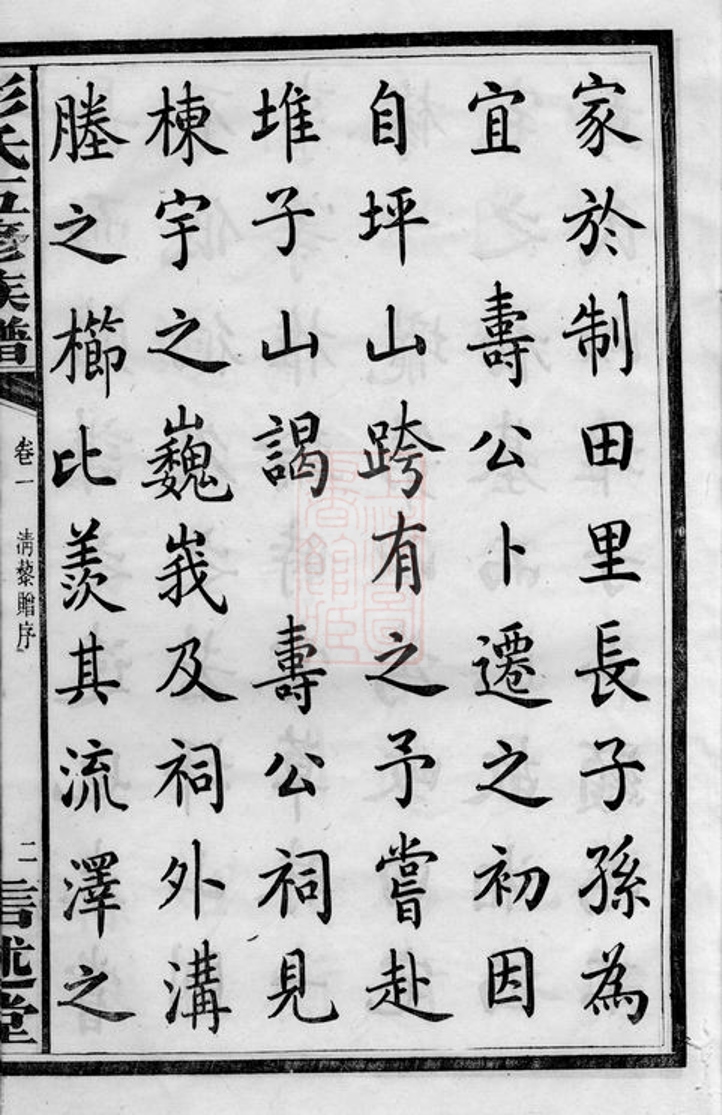 家於制田里長子孫為
宜　壽公卜遷之初因
自坪山跨有之予嘗赴
堆子山謁　壽公祠見
棟宇之巍峩及祠外溝
塍之櫛比羨其流澤之
彭氏五修族譜
卷一　清藜贈序
二
述堂